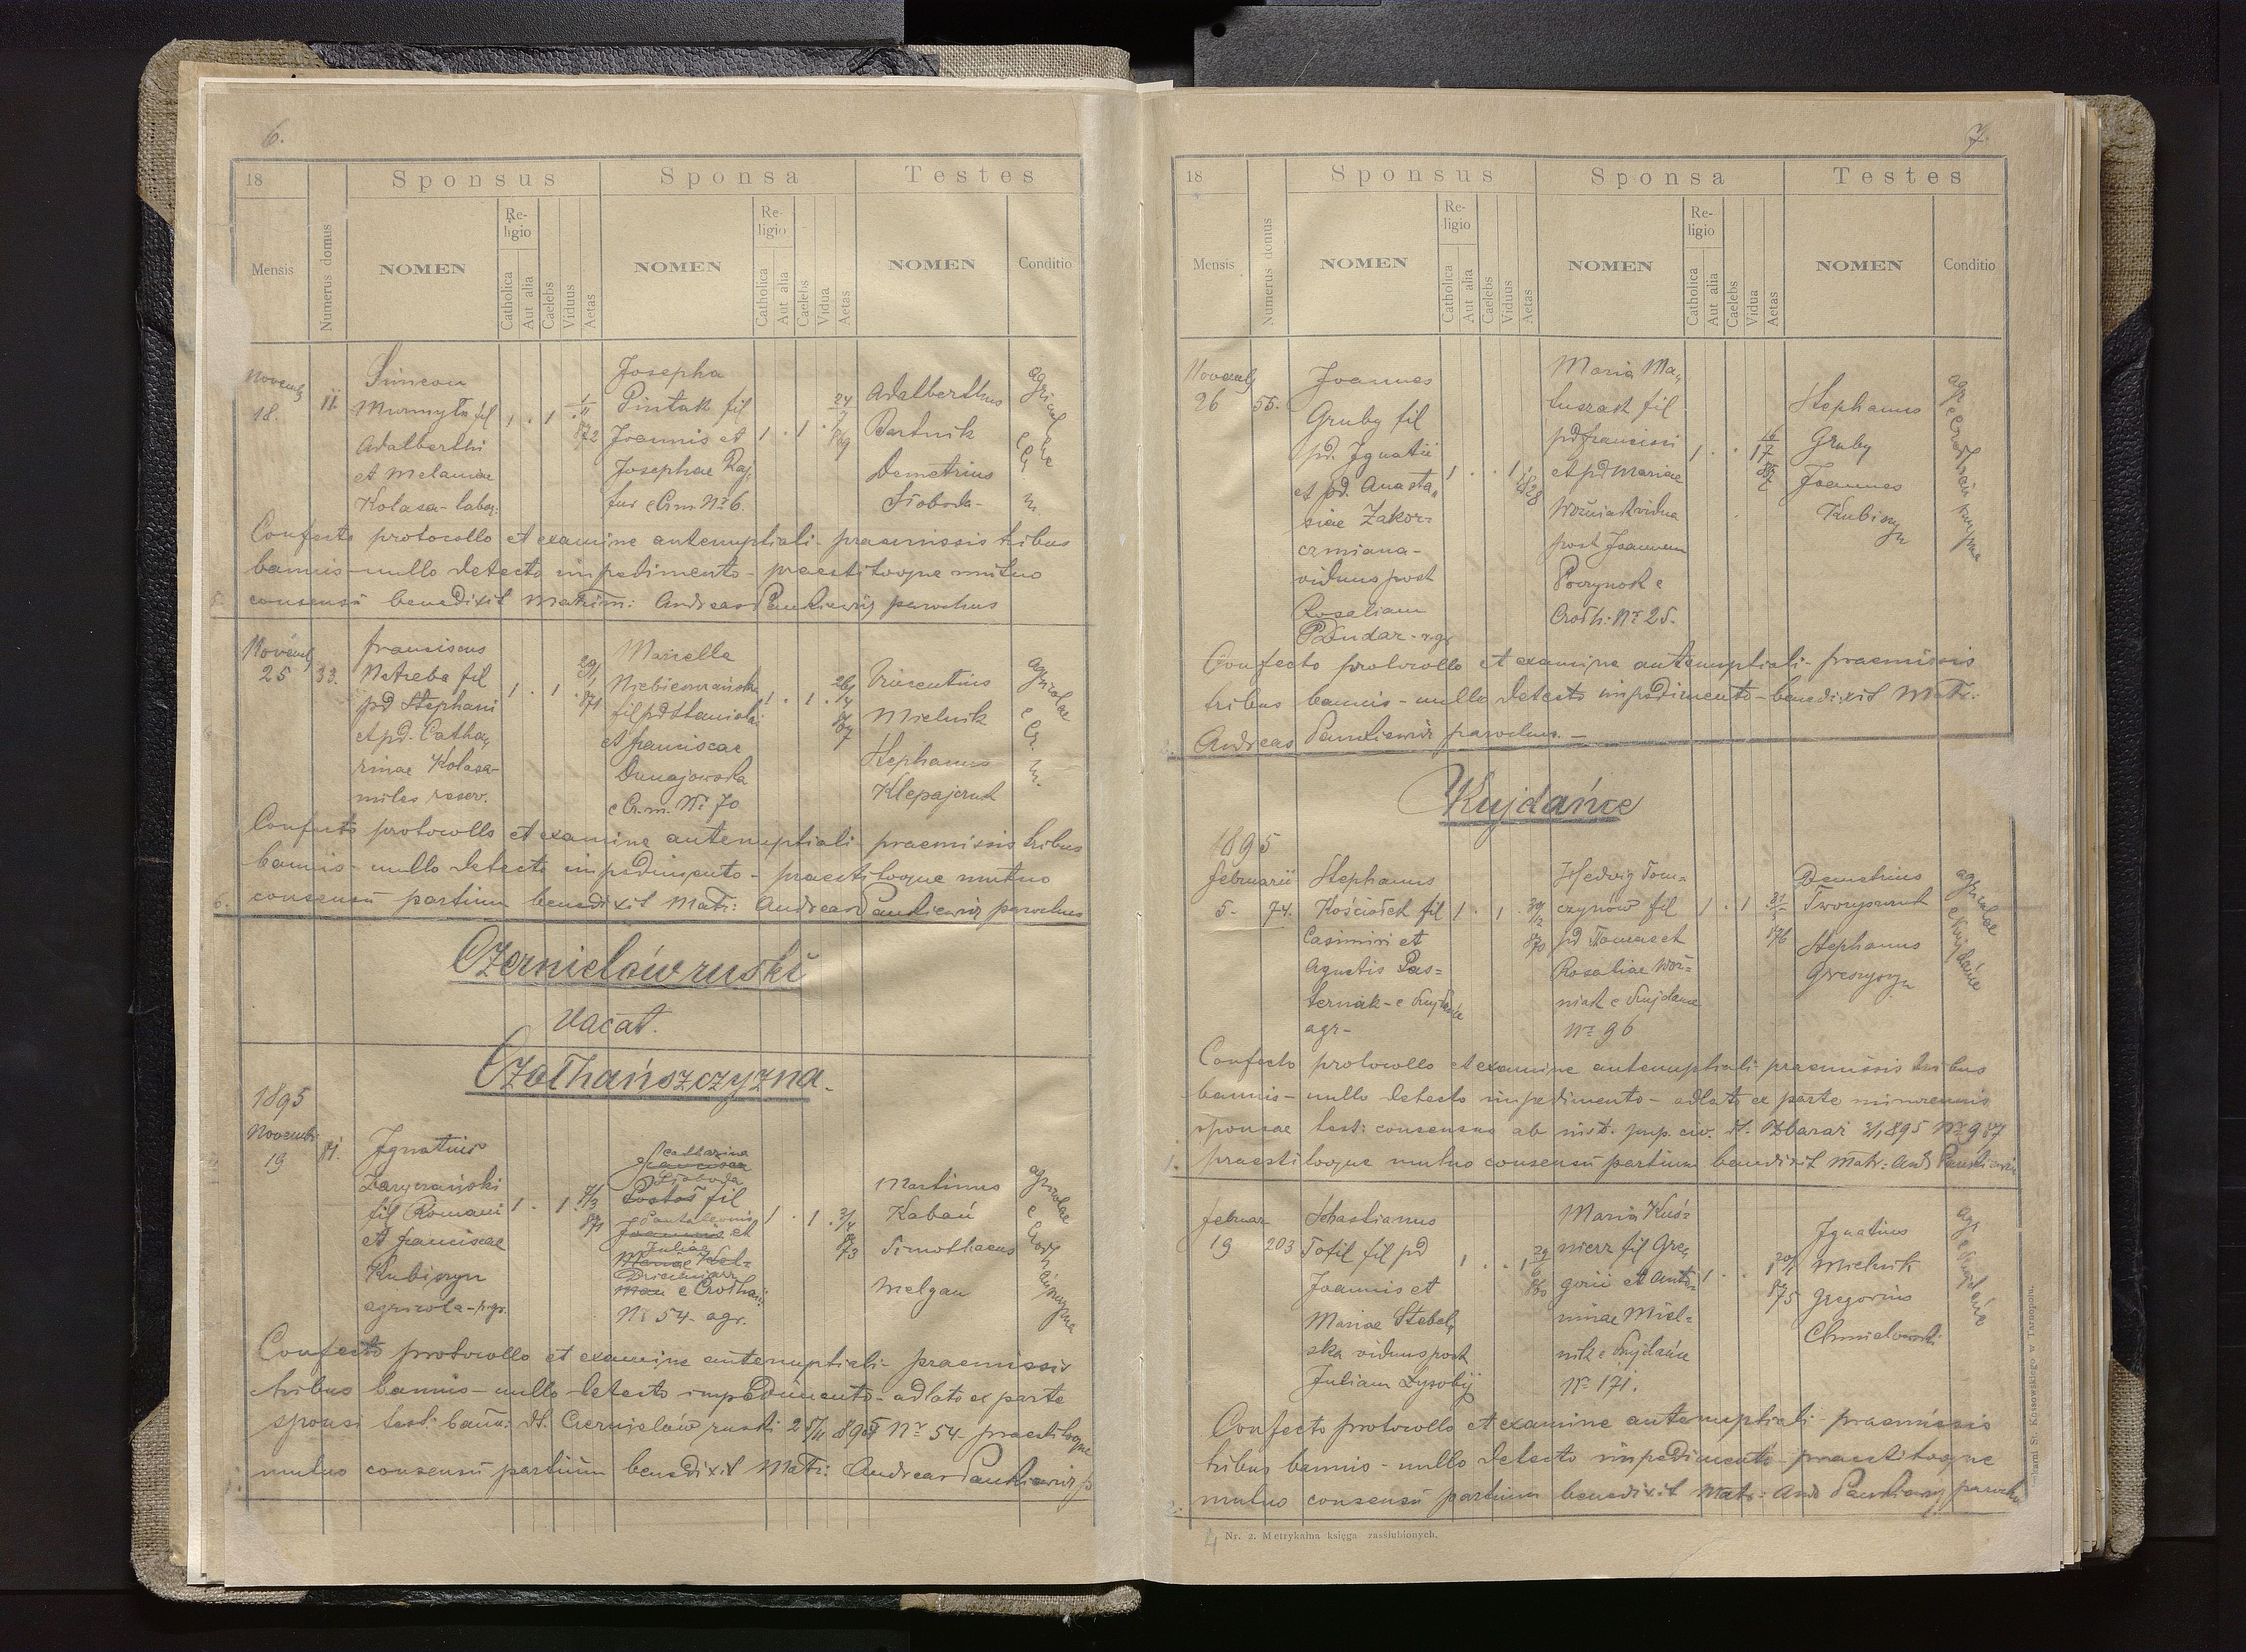 6.
18
Sponsus
Sponsa
Testes
Mensis
Numerus domus
NOMEN
Religio
Catholica
Aut alia
Caelebs
Viduus
Aetas
NOMEN
Religio
Catholica
Aut alia
Caelebs
Vidua
Aetas
NOMEN
Conditio
Novemb
18.
11.
Simeon
Murmyła fil
Adalberthi
et Melaniae
Kolasa - labor:
1 . 1 .
1/11 872
Josepha
Pintak fil
Joannis et
Josephae Raj,
tur e Crm № 6.
1 . 1 .
Adalberthus
Bartnik
Demetrius
Słoboda
Confecto protocollo et examine antenuptiali - praemissis tribus
bannis - nullo detecto impedimento - praestitoque mutuo
consensu benedixit Matrim: Andreas Pankiewicz parochus
Novemb
25
33.
Franciscus
Netreba fil
pd Stephani
et pd. Catha,
rinae Kolasa -
miles reserv.
1 . 1 .
29/1 871
Marcella
fil pd Stanislai
et Franciscae
Dunajowska
e Cr.m. № 70
1 . 1 .
Vincentius
Mielnik
Stephanus
Klepajczuk
agricolae
e Cr.
m.
Confecto protocollo et examine antenuptiali - praemissis tribus
bannis - nullo detecto impedimento - praestitoque mutuo
6. consensu partium benedixit Matr: Andreas Pankiewicz parochus
Czernielów ruski
vacat.
Czołhańszczyzna.
1895
Novemb
19
81.
Ignatius
fil Romani
et Franciscae
Kubiszyn
agricola -
1 . 1 .
7/3 871
Catharina
Słoboda
fil
Pantaleonis
et
Juliae
e Czołhań:
№ 54 - agr.
1 . 1 .
3/4 873
Martinus
Kabań
Timothaeus
Melgan
agricolae
e Czołhańszczyzna
Confecto protocollo et examine antenuptiali - praemissis
tribus bannis - nullo detecto impedimento - adlato ex parte
sponsi test: bann: dt. Czernielów ruski № 54 - praestitoque
mutuo consensu partium benedixit Matr: Andreas Pankiewicz p
7.
18
Sponsus
Sponsa
Testes
Mensis
Numerus domus
NOMEN
Religio
Catholica
Aut alia
Caelebs
Viduus
Aetas
NOMEN
Religio
Catholica
Aut alia
Caelebs
Vidua
Aetas
NOMEN
Conditio
Novemb
26
55.
Joannes
Gruby fil
pd. Ignatii
et pd. Anasta,
siae Zakor=
czmiana -
viduus post
Rosaliam
1 . . 1
Maria Ma,
tuszak fil
pd Francisci
et pd Mariae
Woźniak vidua
post Joannem
Poczynok e
Czołh: № 25.
1 . . 1
Stephanus
Gruby
Joannes
Kubiszyn
Confecto protocollo et examine antenuptiali - praemissis
tribus bannis - nullo detecto impedimento - benedixit Matr:
Andreas Pankiewicz parochus. -
Kujdańce
1895
Februarii
5.
74.
Stephanus
Kościołek fil
Casimiri et
Agnetis Pas=
ternak - e Kujdańce
agr -
1 . 1 .
Hedvig Tom=
czynów fil
pd Thomae et
Rosaliae Woź=
niak e Kujdańce
№ 96
1 . 1 .
Demetrius
Tworyszczuk
Stephanus
agricolae
e Kujdańce
Confecto protocollo et examine antenuptiali - praemissis tribus
bannis - nullo detecto impedimento - adlato ex parte minorennis
sponsae test: consensus ab inst. pup. civ. dt. Zbaraż № 987
1. praestitoque mutuo consensu partium benedixit Matr: And Pankiewicz
Februar
19
203
Sebastianus
Totil fil pd
Joannis et
Mariae Stebel,
ska viduus post
Juliam Łysobij
1 . . 1
29/6 860
Maria Kuś=
nierz fil Gre,
gorii et Anto=
ninae Miel=
nik e Kujdańce
№ 171.
1 . .
Ignatius
Mielnik
Gregorius
Chmielowski
agr
e Kujdańce
Confecto protocollo et examine antenuptiali - praemissis
tribus bannis - nullo detecto impedimento - praestitoque
2. mutuo consensu partium benedixit Matr: And Pankiewicz parochus
4
Nr. 2. Metrykalna księga zaślubionych.
St. Kossowskiego w Tarnopolu.